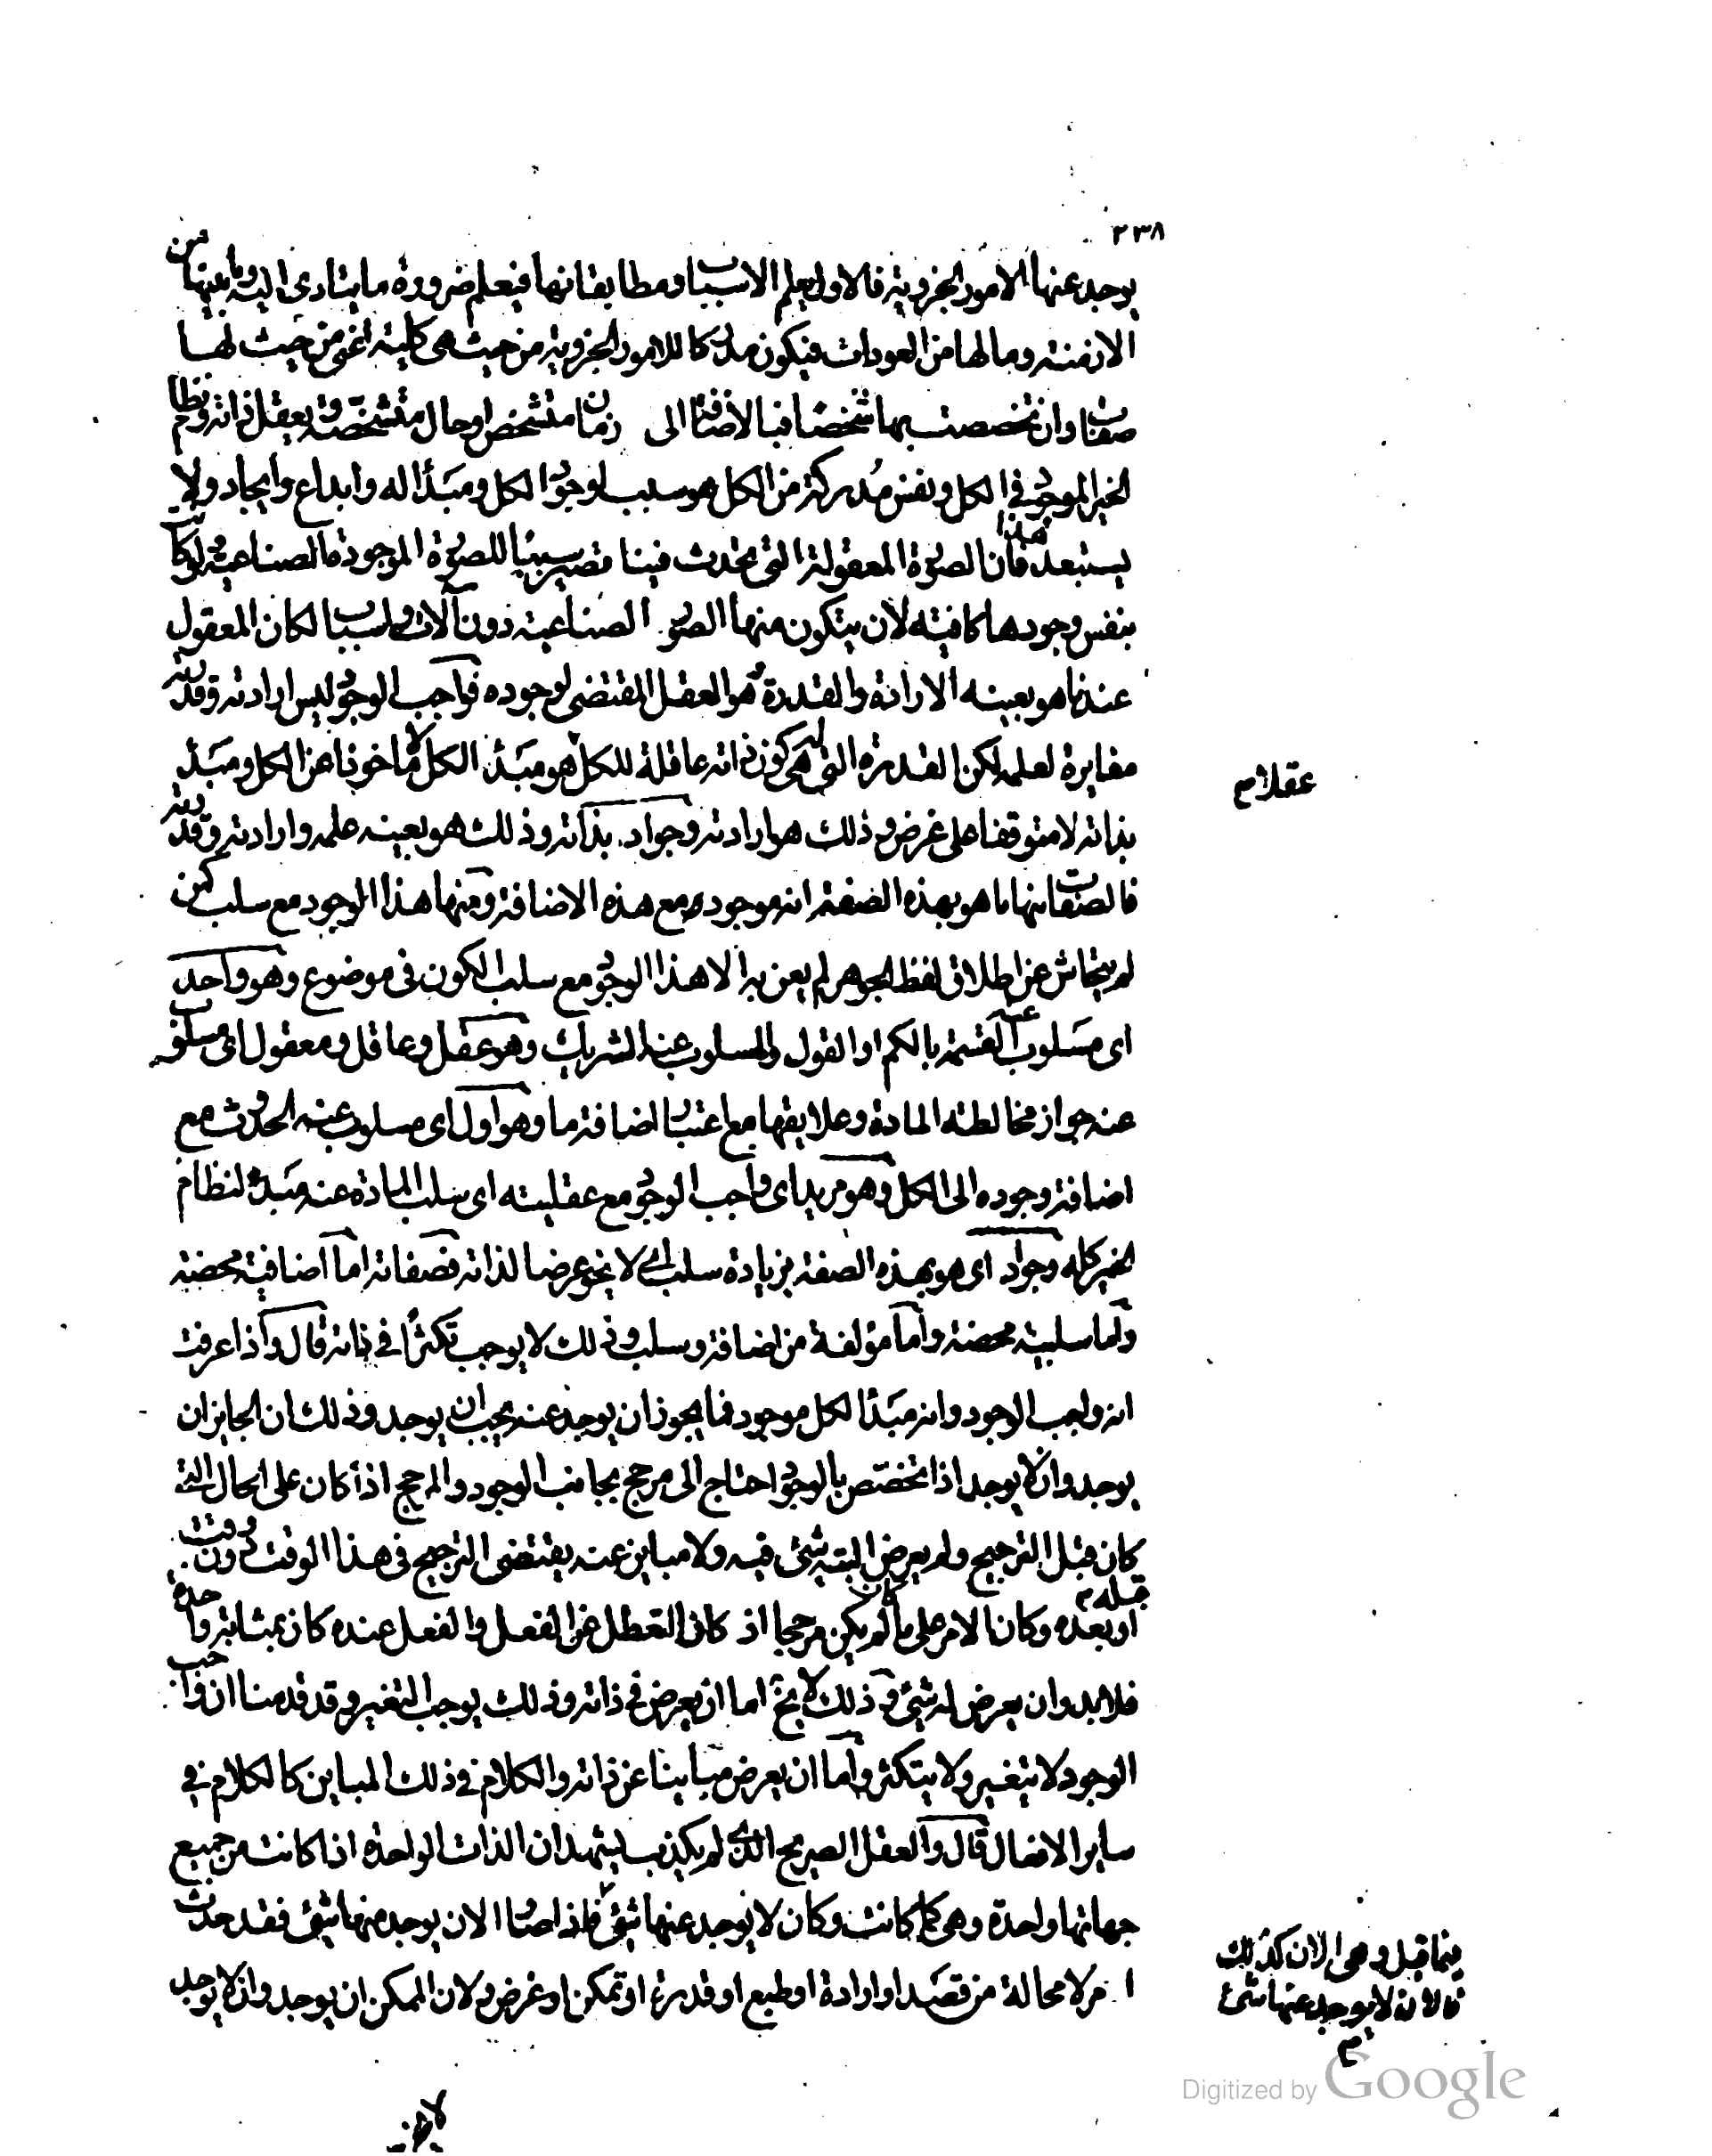 ٢٣٨
يوجد عنها الامور الجزوية فالاول يعلم الاسباب ومطابقاتها فيعلم ضرورة ما يتادى اليه وما بينها من
الازمنة وما لها من العودات فيكون مدركا للامور الجزوية من حيث هى كلية اعنى من حيث لها
صفات وان تخصصت بها شخصا فبالاضافة الى زمان متشخص او حال متشخصة ويعقل ذاته ونظام
الخير الموجود فى الكل ونفس مدركة من الكل هو سبب لوجود الكل ومبدا له وابداع وايجاد ولا
يستبعد هذا فان الصورة المعقولة التى تحدث فينا تصير سببا للصورة الموجودة الصناعية ولو كانت
بنفس وجودها كافية لان يتكون منها الصور الصناعية دون آلات واسباب لكان المعقول
عندنا هو بعينه الارادة والقدرة وهو العقل المقتضى لوجوده فواجب الوجود ليس ارادته وقدرته
مغايرة لعلمه لكن القدرة التى له هى كون ذاته عاقلة للكل هو مبدا الكل لا ماخوذا عن الكل ومبدا
بذاته لا متوقفا على غرض وذلك هو ارادته وجواد بذاته وذلك هو بعينه علمه وارادته وقدرته
فالصفات منها ما هو بهذه الصفة انه موجود مع هذه الاضافة ومنها هذا الوجود مع سلب كمن
لم يتحاش عن اطلاق لفظ الجوهر لم يعن به الا هذا الوجود مع سلب الكون فى موضوع وهو واحد
اى مسلوب عنه القسمة بالكم او القول والمسلوب عنه الشريك وهو عقل وعاقل ومعقول اى مسلوب
عنه جواز مخالطة المادة وعلايقها مع اعتبار اضافة ما وهو اول اى مسلوب عنه الحدوث مع
اضافة وجوده الى الكل وهو مريد اى واجب الوجود مع عقليته اى سلب المادة عنه مبدا لنظام
الخير كله وجواد اى هو بهذه الصفة بزيادة سلب اى لا ينحو عرضا لذاته فصفاته اما اضافية محضة
واما سلبية محضة واما مؤلفة من اضافة وسلب وذلك لا يوجب تكثرا فى ذاته قال واذا عرفت
انه واجب الوجود وانه مبدا لكل موجود فما يجوز ان يوجد عنه يجب ان يوجد وذلك ان الجايز ان
يوجد وان لا يوجد اذا تخصص بالوجود احتاج الى مرجح بجانب الوجود والمرجح اذا كان على الحال التى
كان قبل الترجيح ولم يعرض البتة شئ فيه ولا مباين عنه يقتضى الترجيح فى هذا الوقت دون وقت
قبله او بعده وكان الامر على ما كان لم يكن مرجحا اذ كان التعطل عن الفعل والفعل عنده كان بمثابة واحدة
فلا بد وان يعرض له شئ وذلك لا يخ اما ان يعرض فى ذاته وذلك يوجب التغير وقد قدمنا ان واجب
الوجود لا يتغير ولا يتكثر واما ان يعرض مباينا عن ذاته والكلام فى ذلك المباين كالكلام فى
ساير الافعال قال والعقل الصريح الذى لم يكذب يشهد ان الذات الواحدة اذا كانت من جميع
جهاتها واحدة وهى كما كانت وكان لا يوجد عنها شئ فاذا صار الان يوجد منها شئ فقد حدث
امر لا محالة من قصد او ارادة او طبع او قدرة او تمكن او غرض ولان الممكن ان يوجد وان لا يوجد
عقلا م
فيما قبل وهى الان كذلك
فالان لا يوجد عنها شئ
م
Digitized by Google